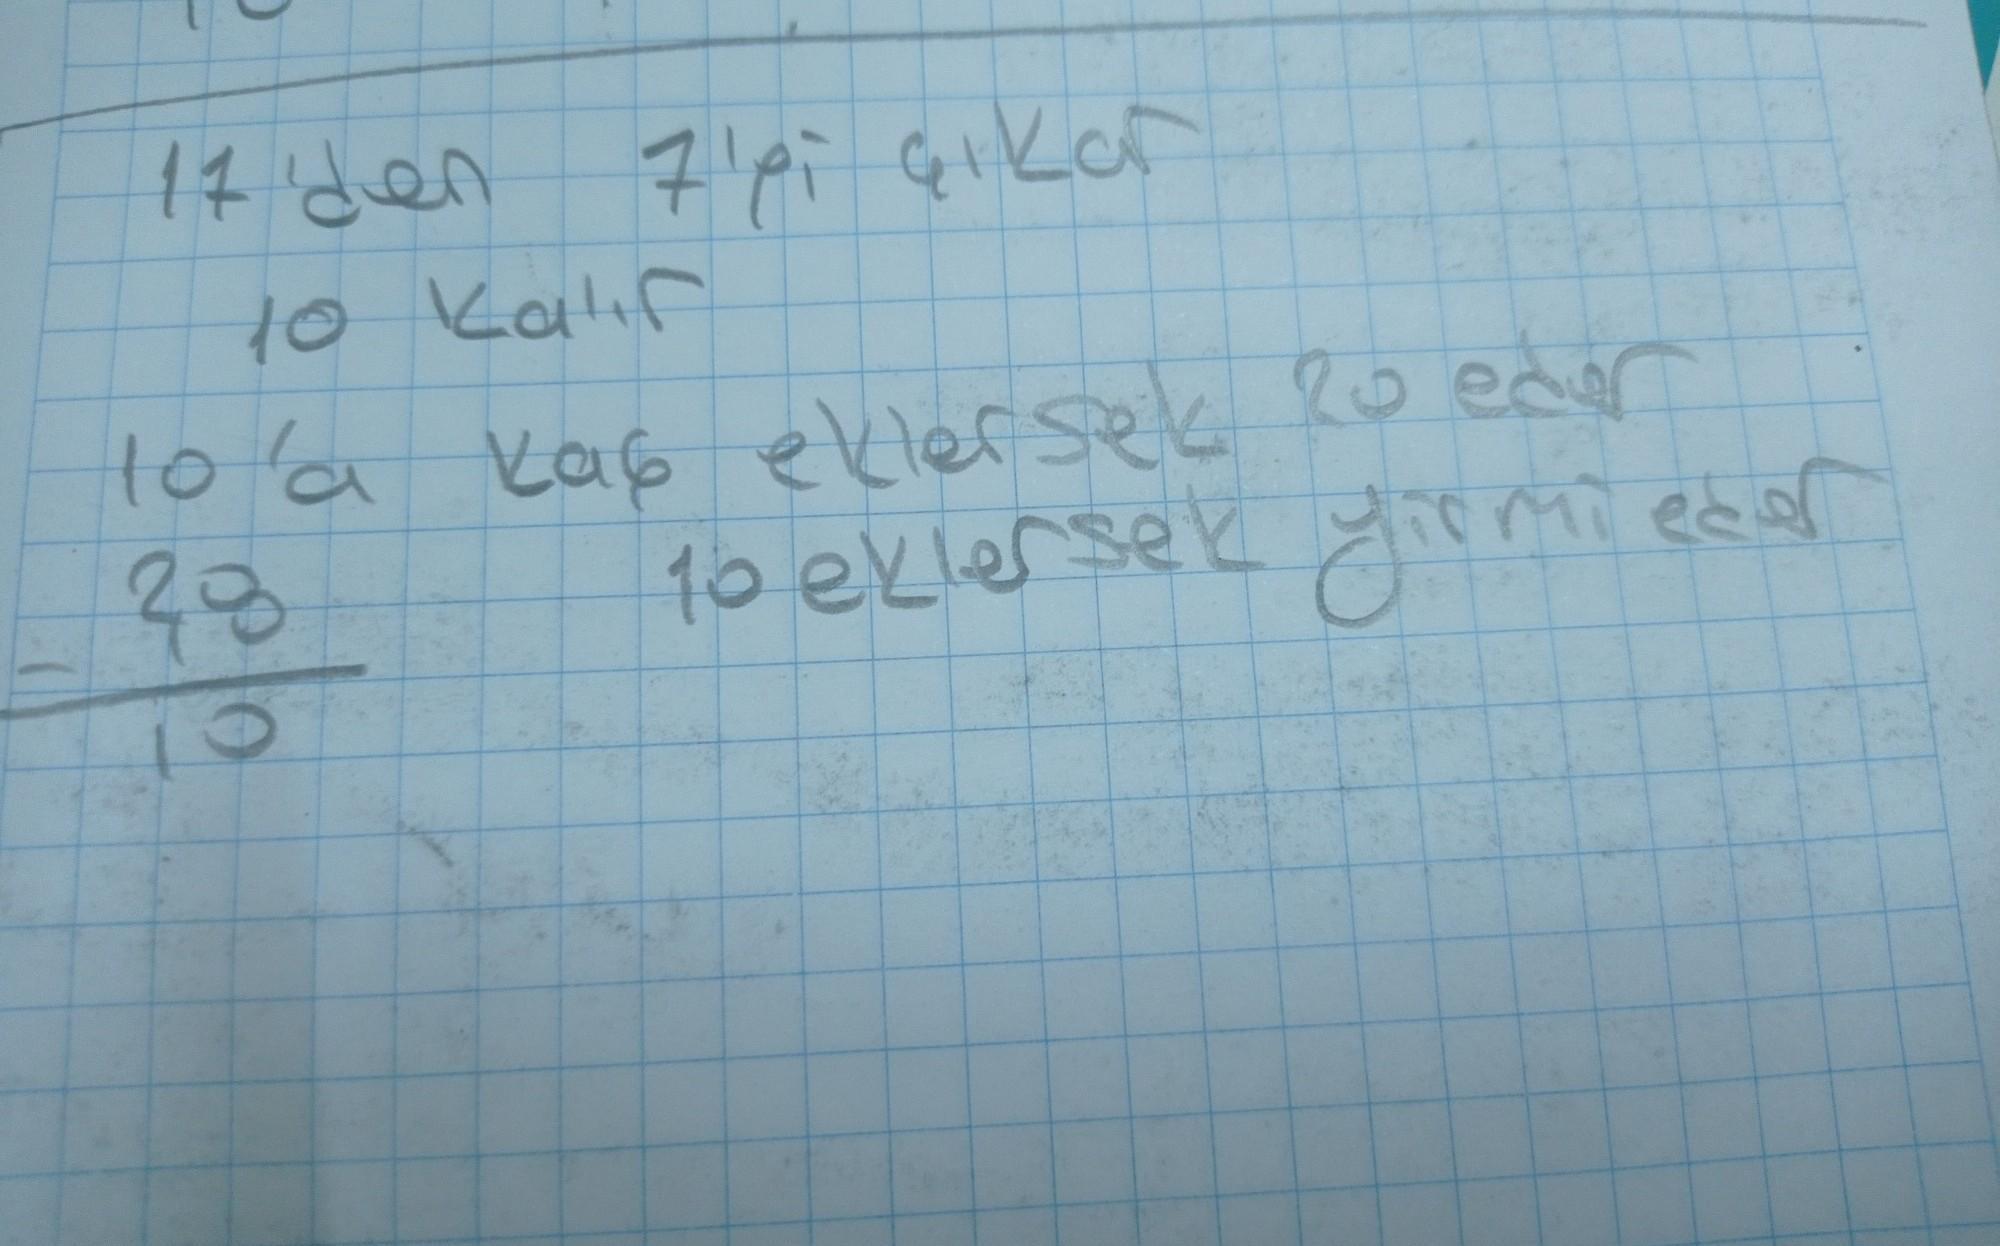 17'den 7'yi çıkar
10 kalır
10'a kaç eklersek 20 eder
20 10 eklersek yirmi eder
- 10
10